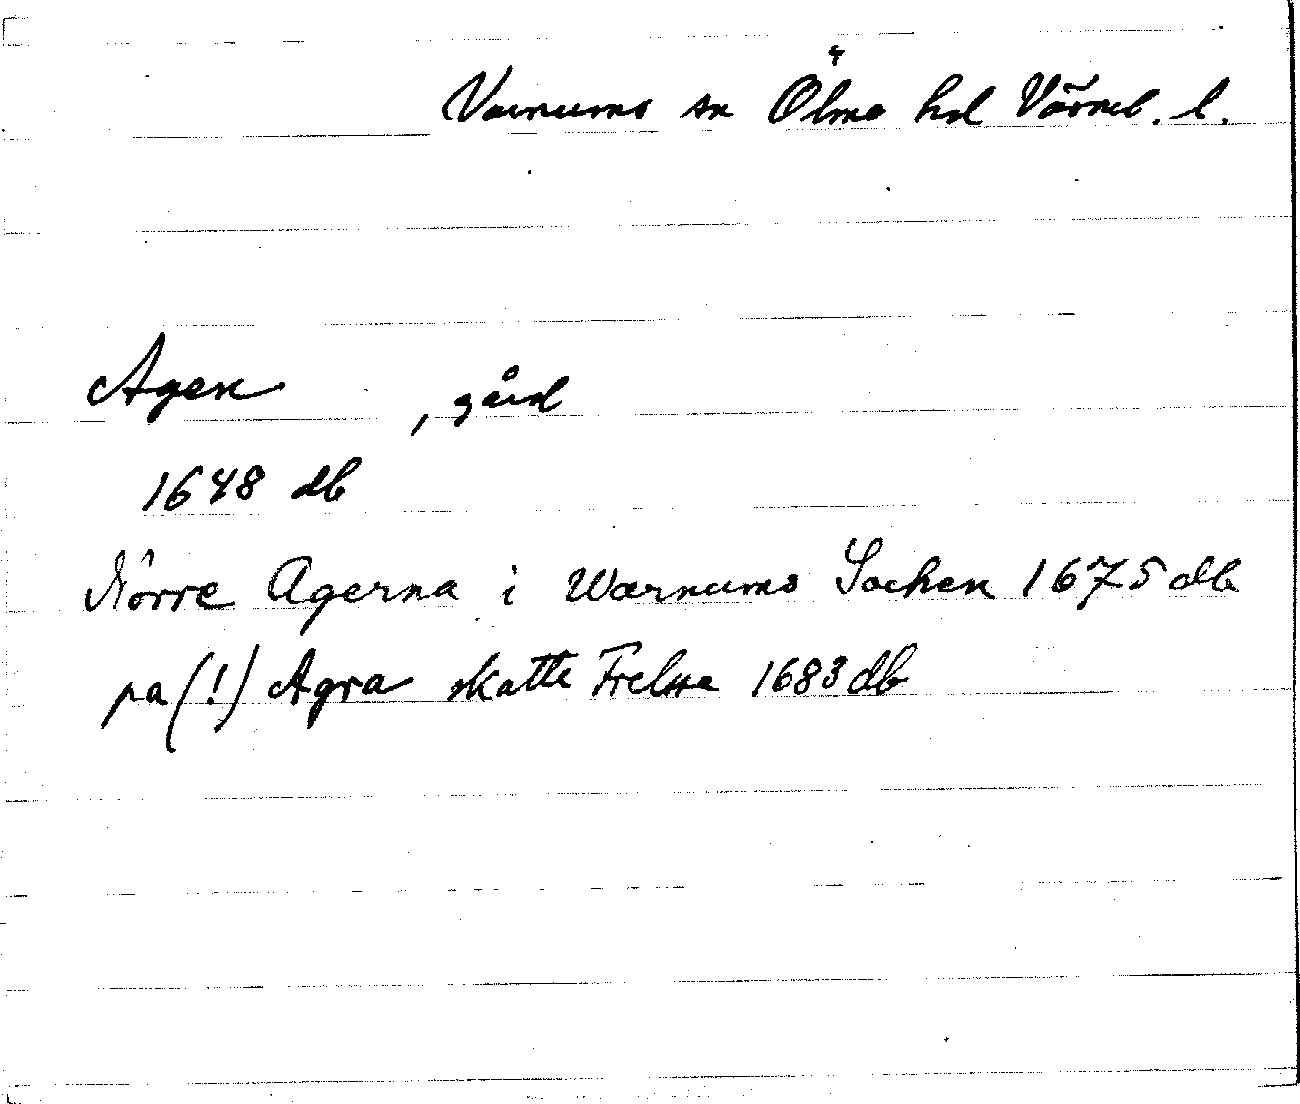 Varnums sn Ölme hd Värml. l.
Agen , gård
1648 db
Norre Agerna i Wärnums Sochen 1675 db
pa (!) Agra skatte Frelsse 1683 db